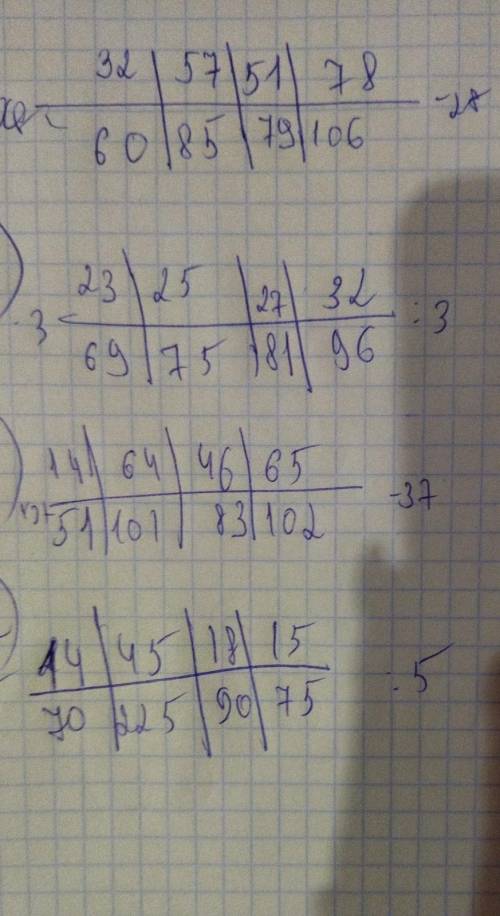 32 | 57 | 51 | 78
60 | 85 | 79 | 106 -28
23 | 25 | 27 | 32
· 3 : 3
69 | 75 | 81 | 96
14 | 64 | 46 | 65
+37 -37
51 | 101 | 83 | 102
14 | 45 | 18 | 15
: 5
70 | 225 | 90 | 75